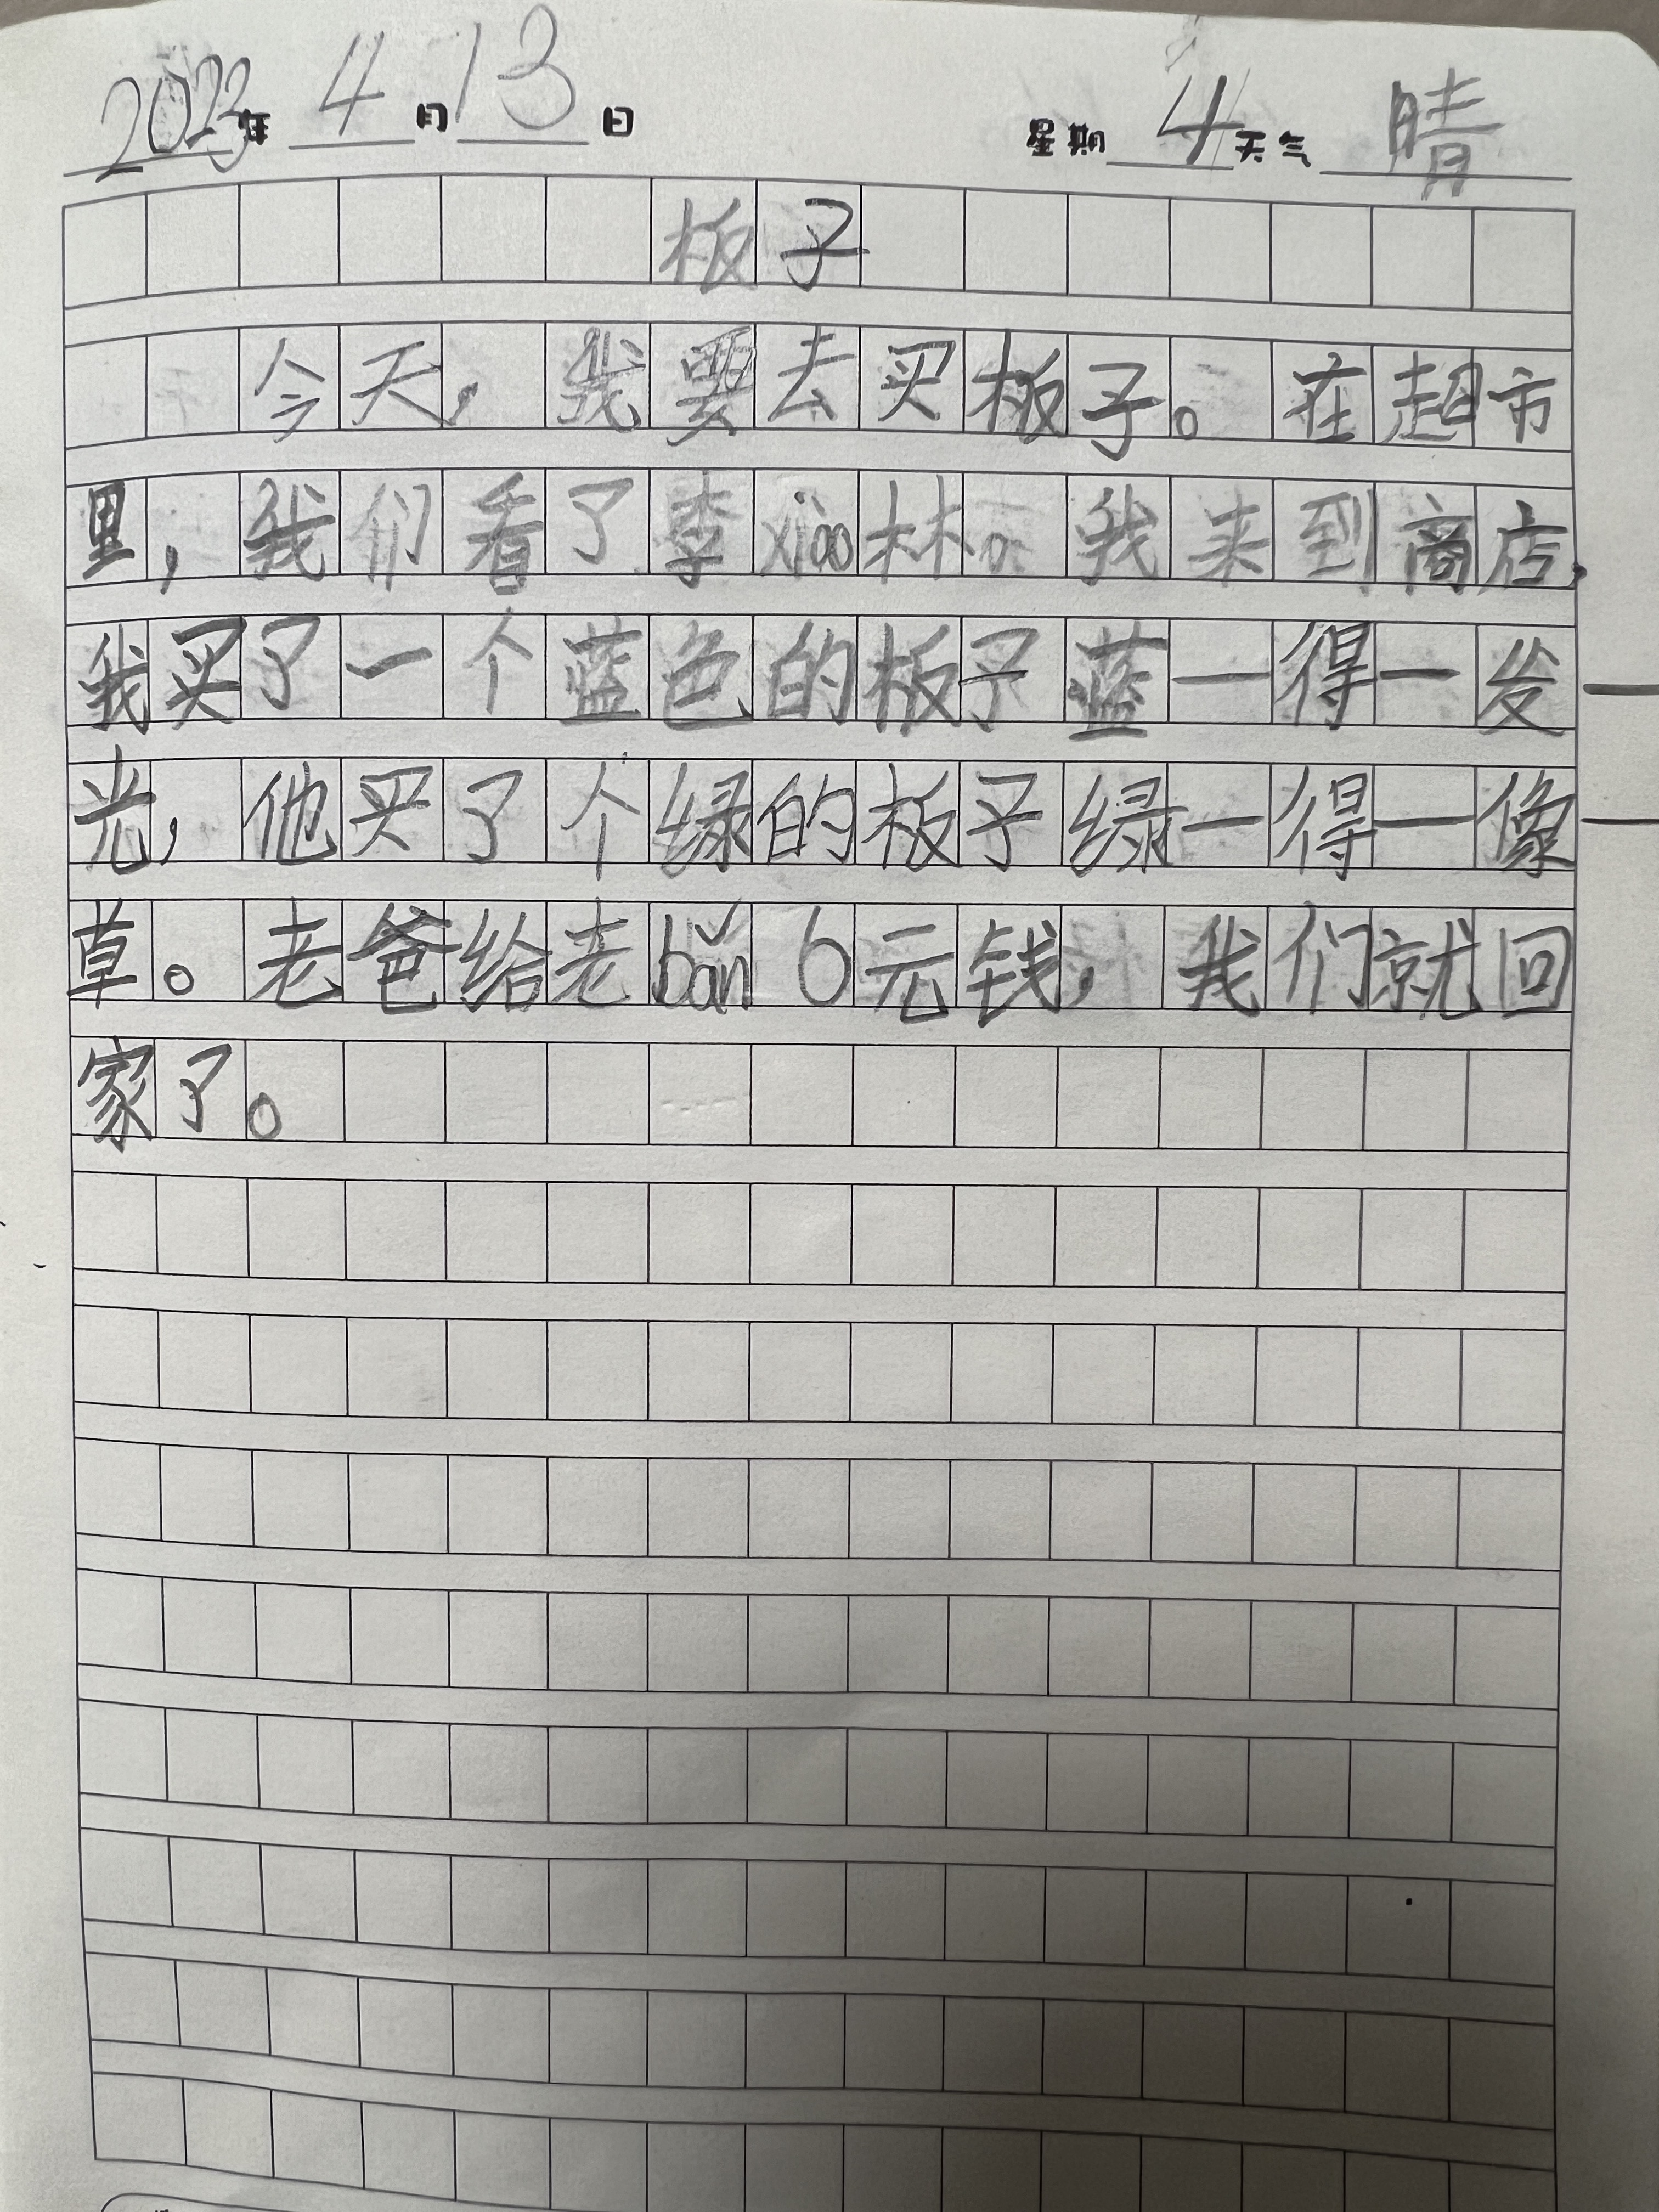 2023年 4 月 13 日 星期 4 天气 晴
板子
今天，我要去买板子。在超市
里，我们看了李xiao林。我来到商店，
我买了一个蓝色的板子蓝一得一发
光，他买了个绿的板子绿一得一像
草。老爸给老bǎn 6元钱，我们就回
家了。